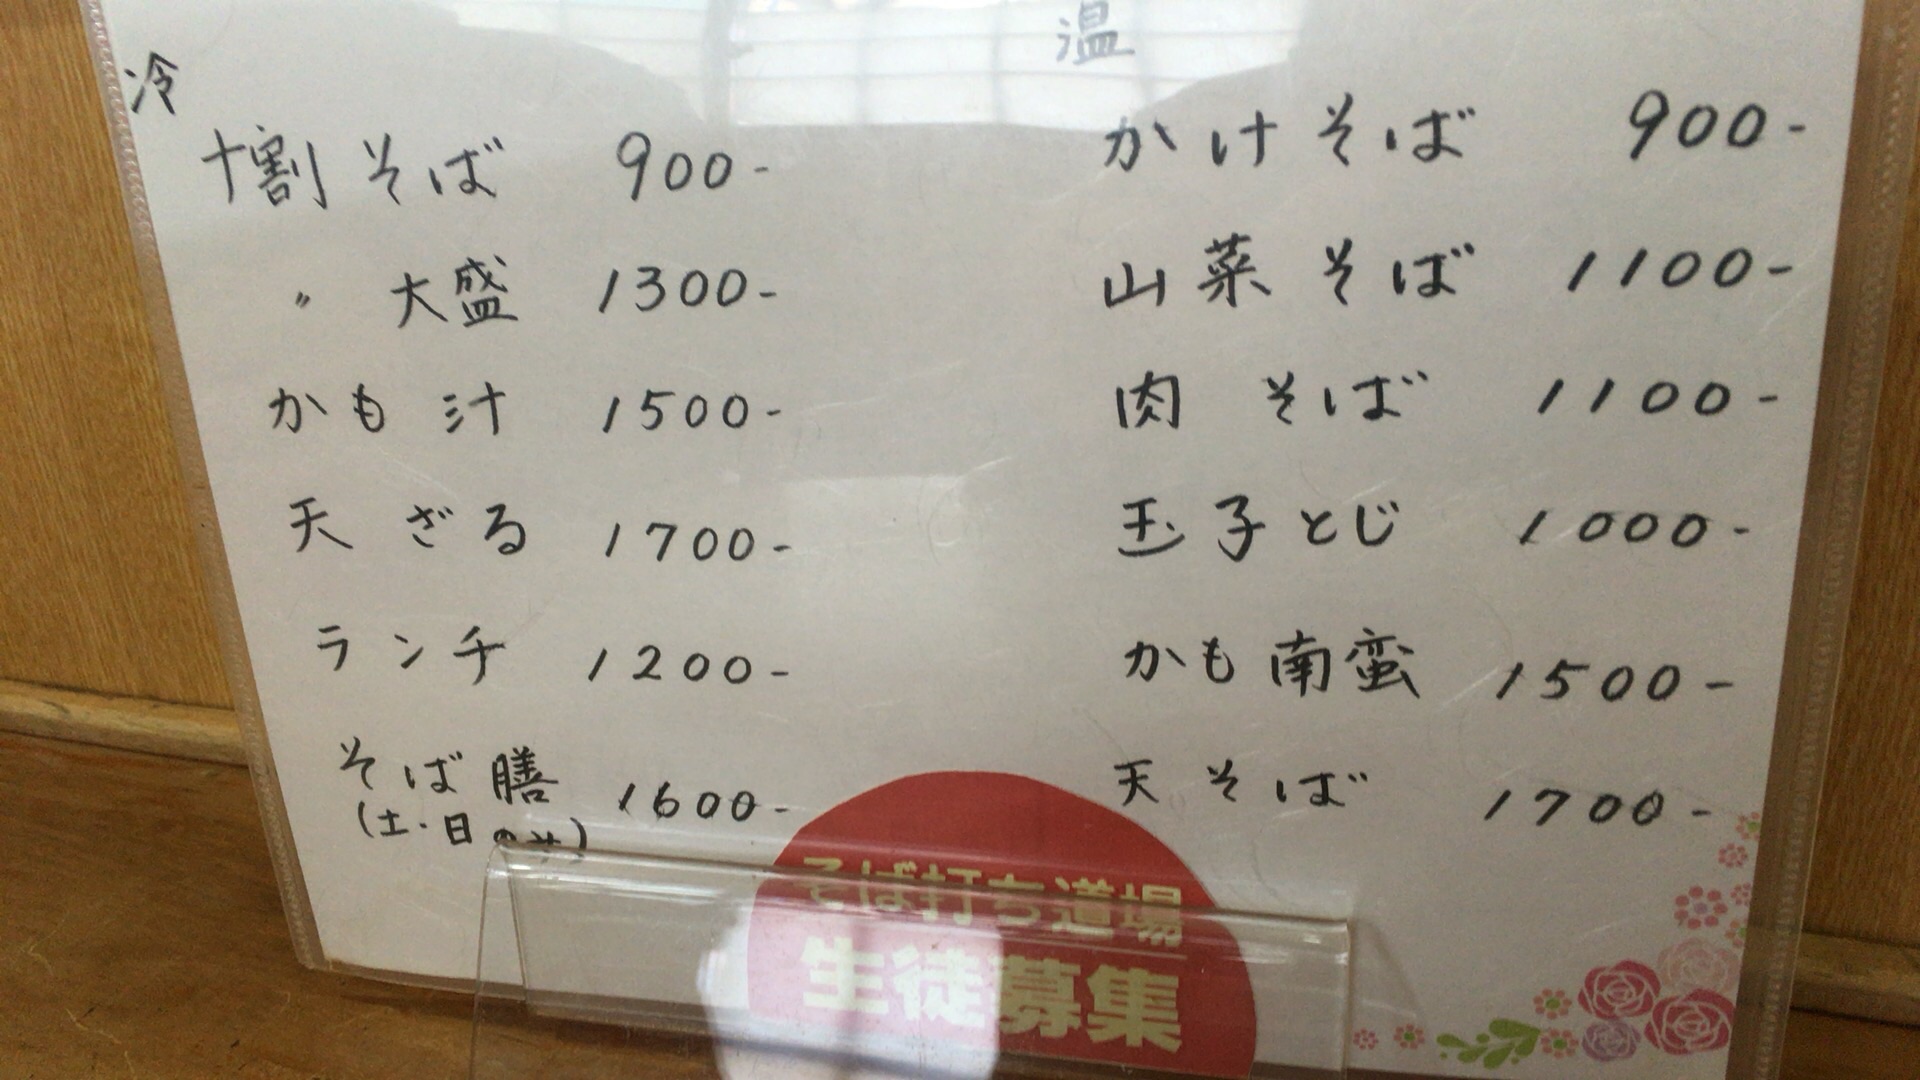 冷
十割そば 900-
〃 大盛 1300-
かも汁 1500-
天ざる 1700-
ランチ 1200-
そば膳 1600-
(土・日のみ)
温
かけそば 900-
山菜そば 1100-
肉そば 1100-
玉子とじ 1000-
かも南蛮 1500-
天そば 1700-
そば打ち道場
生徒募集